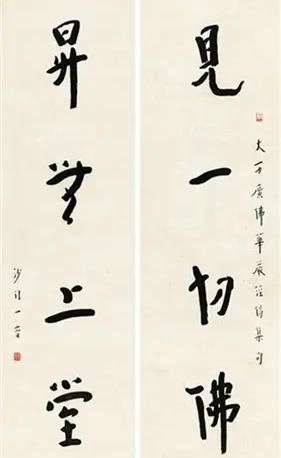 大方廣佛華嚴經偈集句
見一切佛
昇無上堂
沙門一音